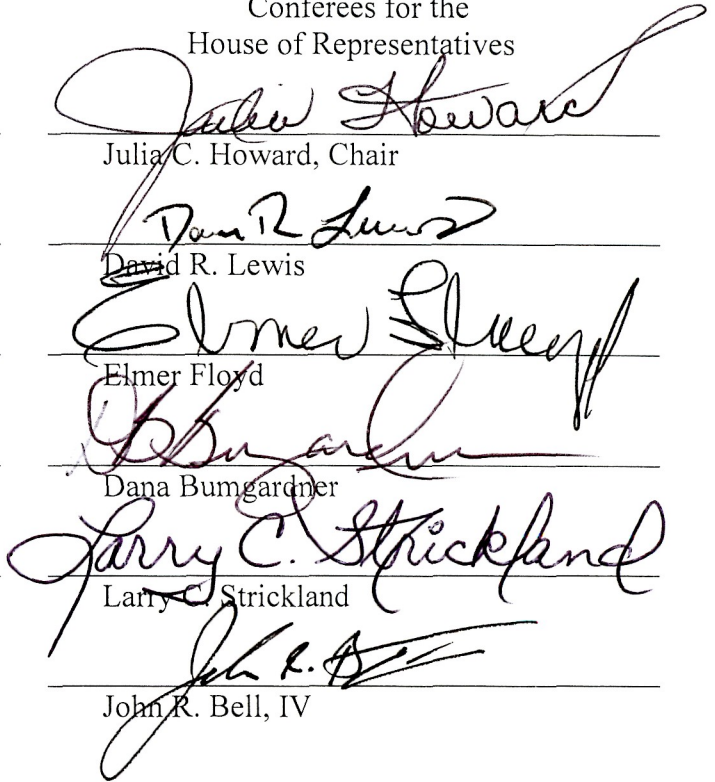 Conferees for the
House of Representatives
Julia Howard
Julia C. Howard, Chair
David R. Lewis
David R. Lewis
Elmer Floyd
Elmer Floyd
D Bumgardner
Dana Bumgardner
Larry C. Strickland
Larry C. Strickland
John R. Bell
John R. Bell, IV